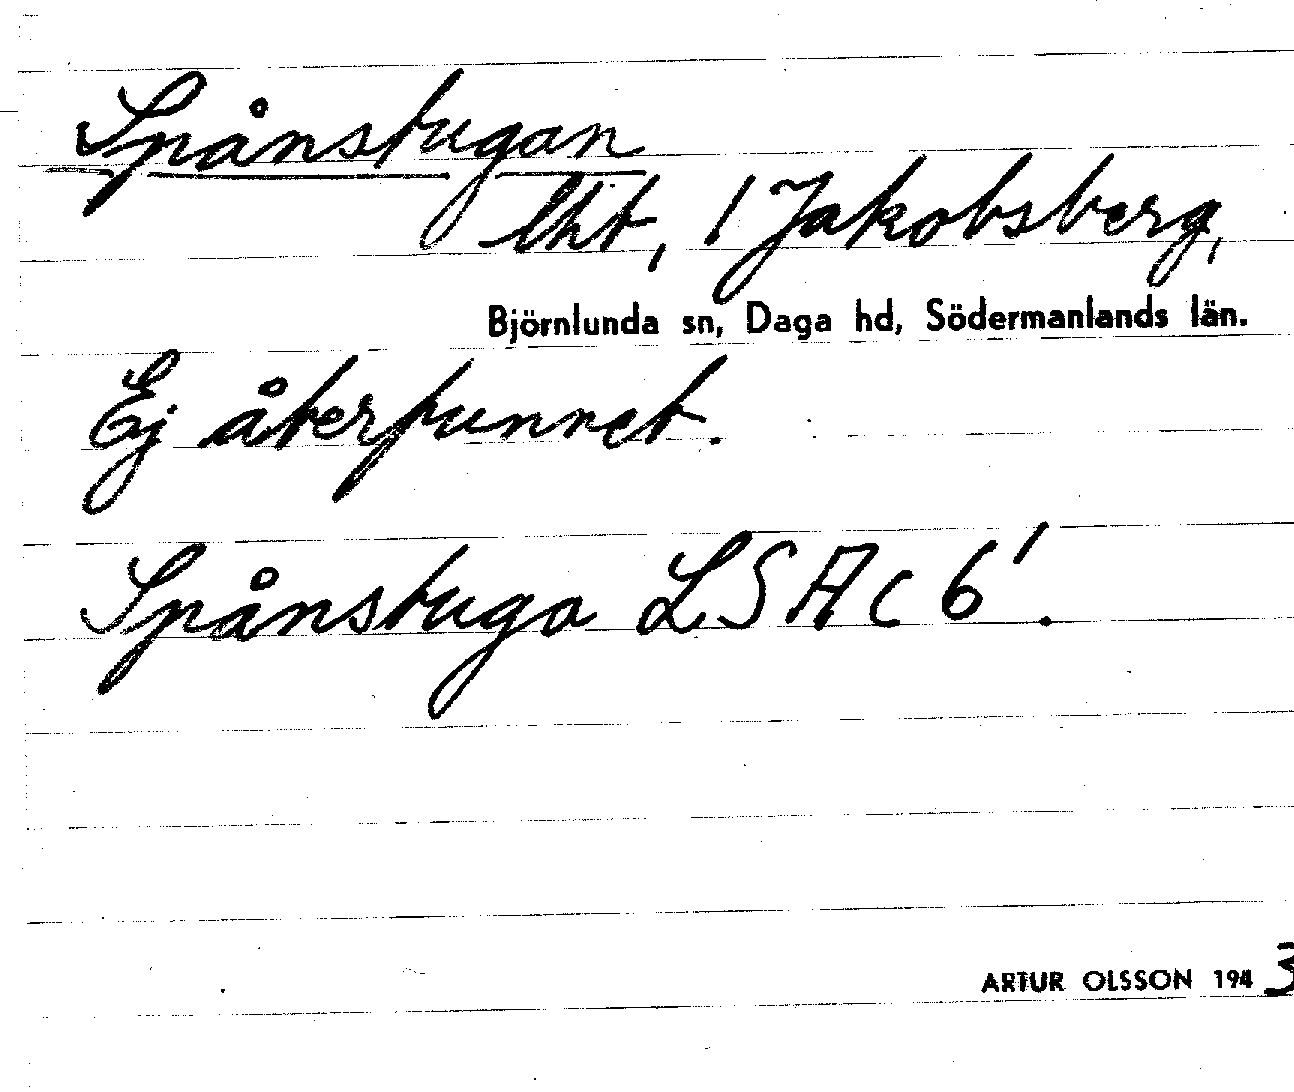 Spånstugan
lht, 1 Jakobsberg,
Björnlunda sn, Daga hd, Södermanlands län.
Ej återfunnet.
Spånstuga LSA c 6'.
ARTUR OLSSON 1943